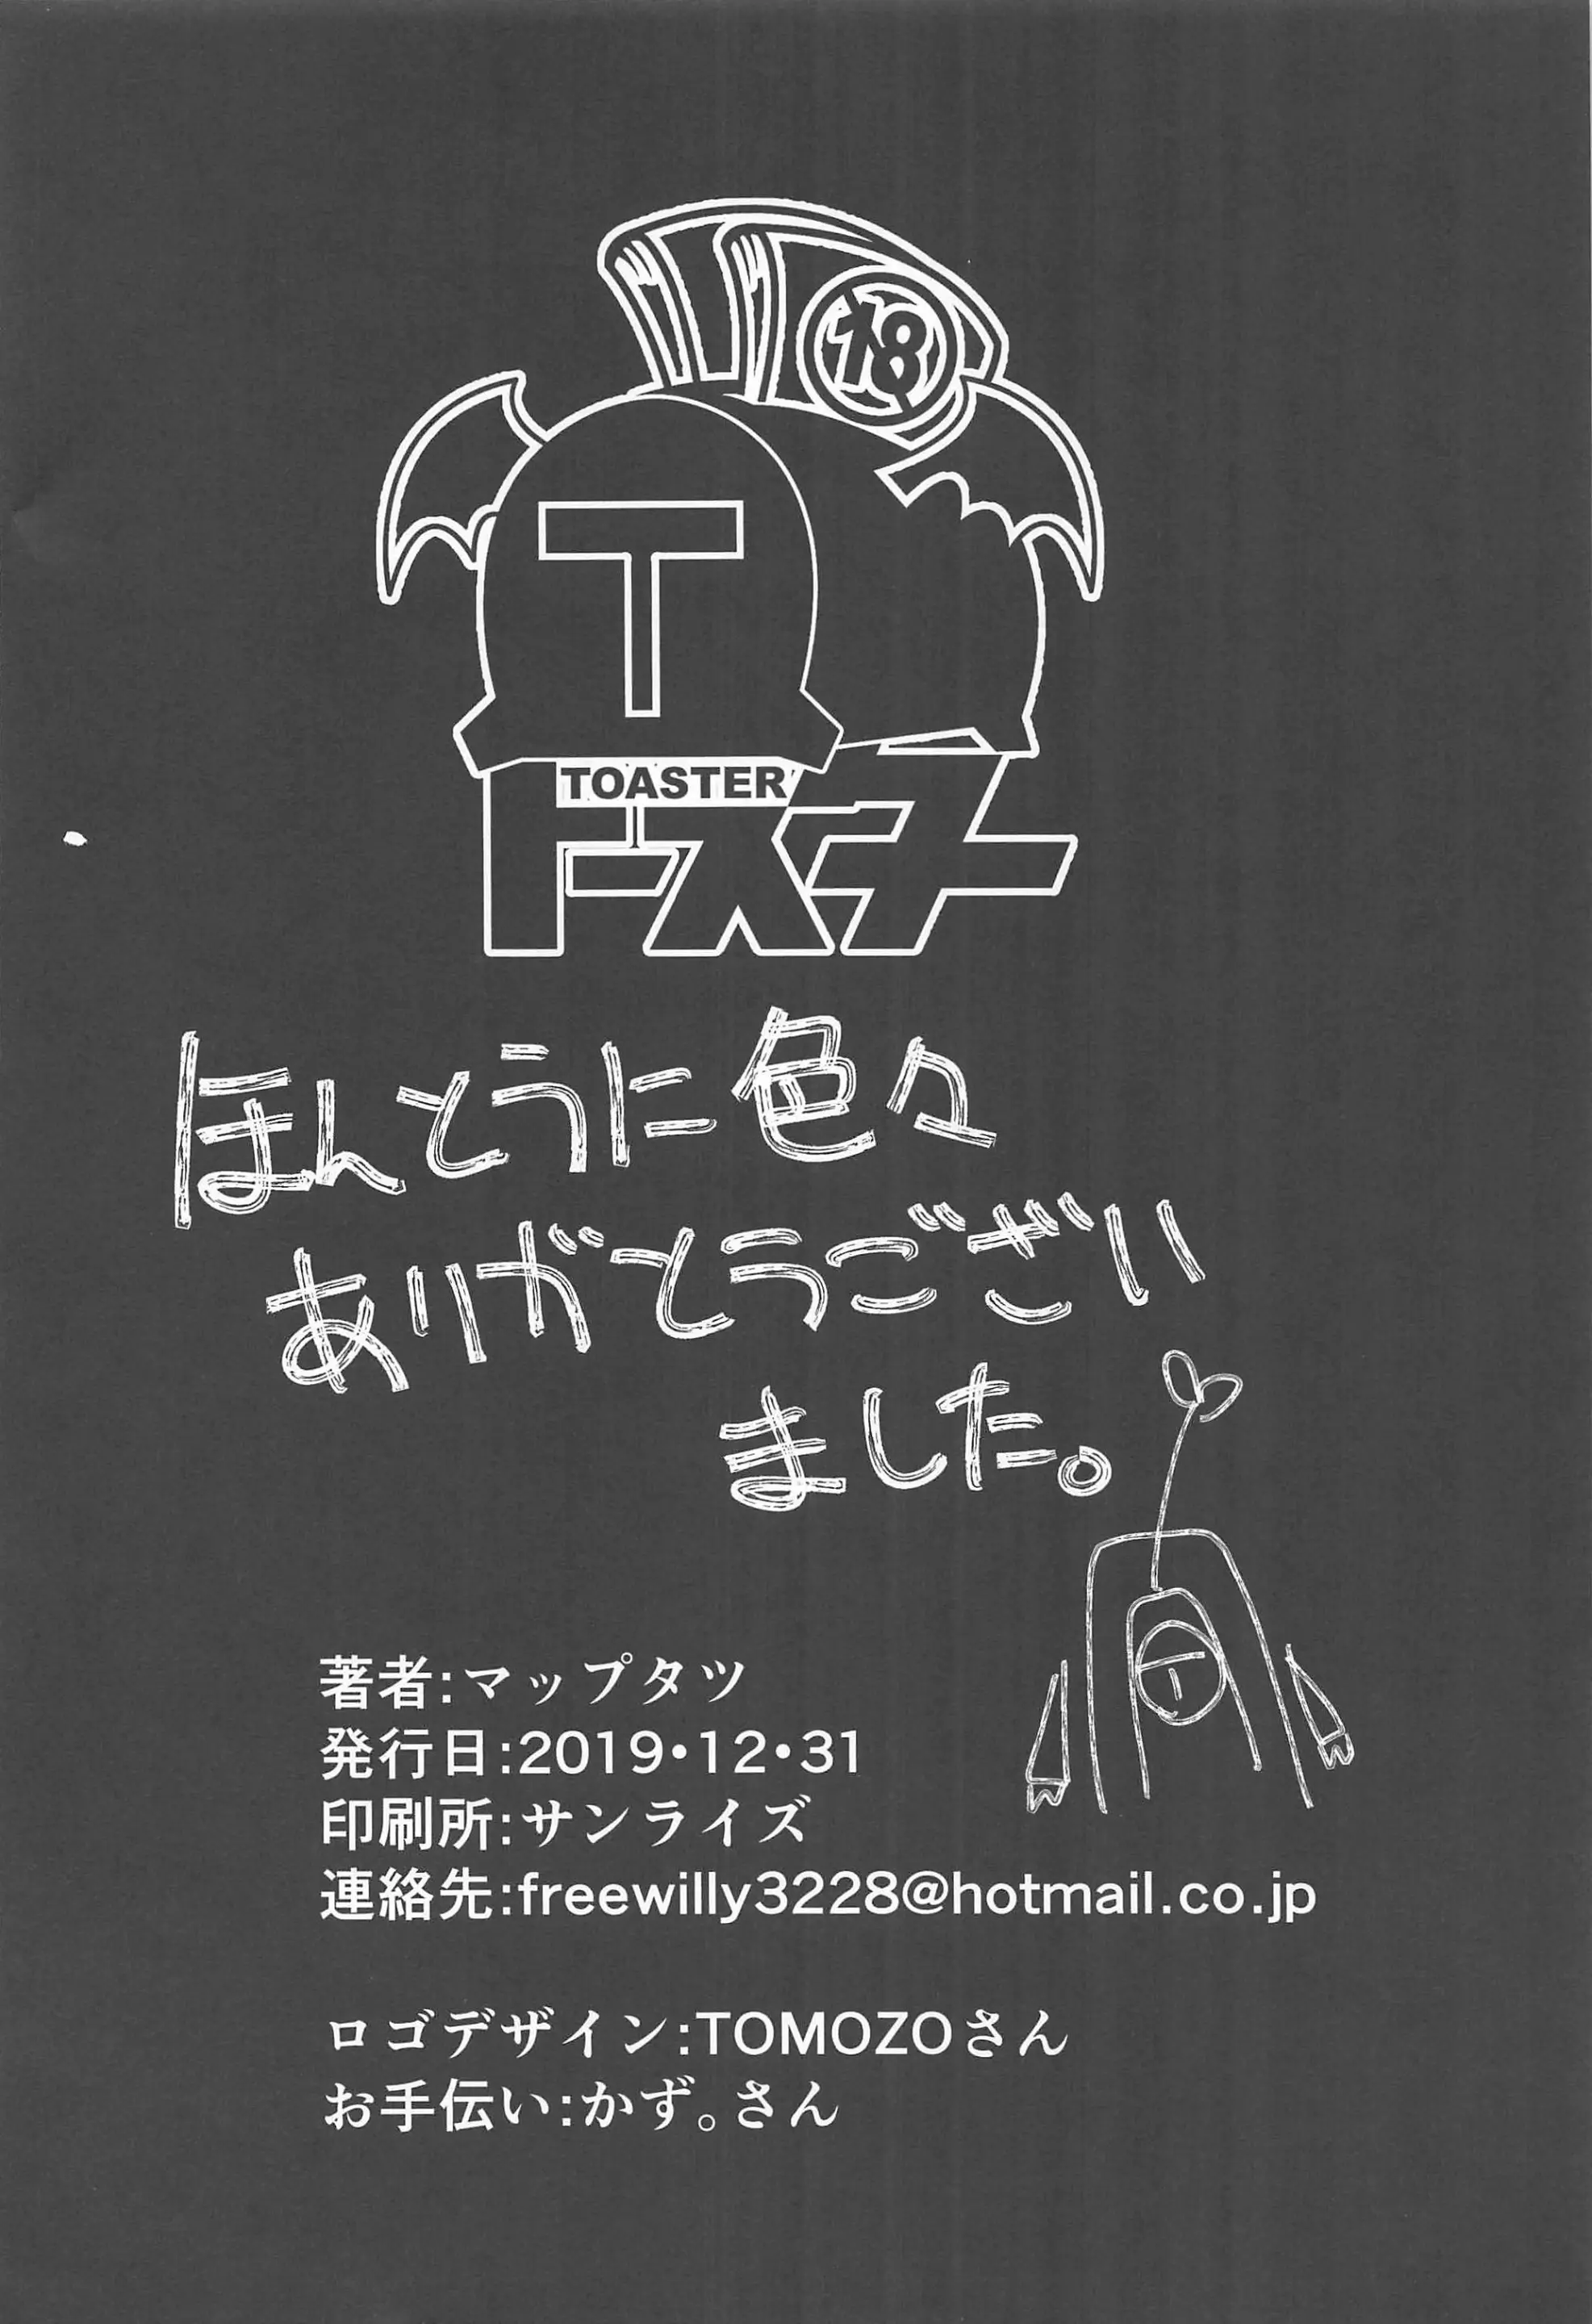 18
T
TOASTER
トースター
ほんとうに色々
ありがとうござい
ました。
著者:マップタツ
発行日:2019・12・31
印刷所:サンライズ
連絡先:freewilly3228@hotmail.co.jp
ロゴデザイン:TOMOZOさん
お手伝い:かず。さん